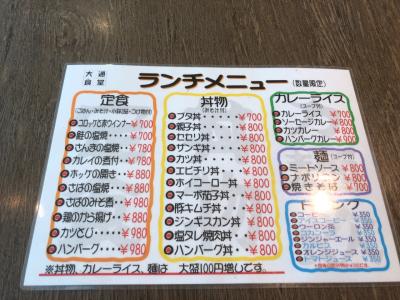 大通
食堂
ランチメニュー (数量限定)
定食
(ごはん・みそ汁・小鉢2品・つけ物付)
コロッケとあらウインナー ¥700
鮭の塩焼・・・ ¥700
さんまの塩焼・・ ¥780
カレイの煮付・・ ¥780
ホッケの開き・・ ¥880
さばの塩焼・・・ ¥880
さばのみそ煮・・ ¥980
鶏のから揚げ・・ ¥880
カツとじ・・・ ¥980
ハンバーグ・・・・ ¥980
丼物
(みそ汁付)
ブタ丼・・・・ ¥700
親子丼・・・・ ¥800
セセリ丼・・・ ¥800
ザンギ丼・・・ ¥800
カツ丼・・・・ ¥800
エビチリ丼・・ ¥800
ホイコーロー丼・ ¥800
マーボ茄子丼・・ ¥800
豚キムチ丼・・・ ¥800
ジンギスカン丼・ ¥800
塩タレ焼肉丼・・ ¥800
ハンバーグ丼・・ ¥800
カレーライス
(スープ付)
カレーライス・・・ ¥700
ソーセージカレー ¥800
カツカレー・・・ ¥800
ハンバーグカレー ¥900
麺 (スープ付)
ミートソース・・ ¥800
ナポリタン・・・ ¥800
焼きそば・・・ ¥700
ドリンク
コーヒー ¥350
アイスコーヒー ¥350
ウーロン茶 ¥350
ジンジャーエール ¥350
カルピス ¥350
オレンジジュース ¥350
トマトジュース ¥350
※丼物、カレーライス、麺は 大盛100円増しです。